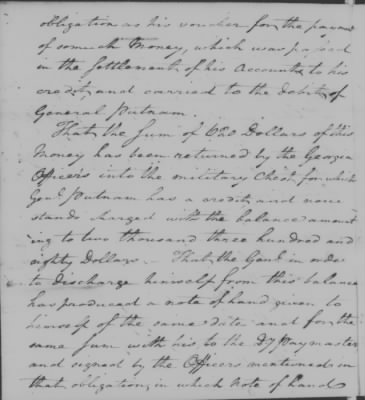 obligation as his voucher for the payment
of so much Money, which was passed
in the Settlement of his Accounts to his
credit, and carried to the debit of
General Putnam.
That the Sum of 620 Dollars of this
Money has been returned by the Georgia
Officers into the military Chest for which
Genl Putnam has a credit, and now
stands charged with the balance amount
ing to two thousand three hundred and
eighty Dollars — That the Genl in order
to discharge himself from this balance
has produced a note of hand given to
himself of the same date and for the
same Sum with his to the Dy Paymaster
and signed by the Officers mentioned in
that obligation, in which Note of hand